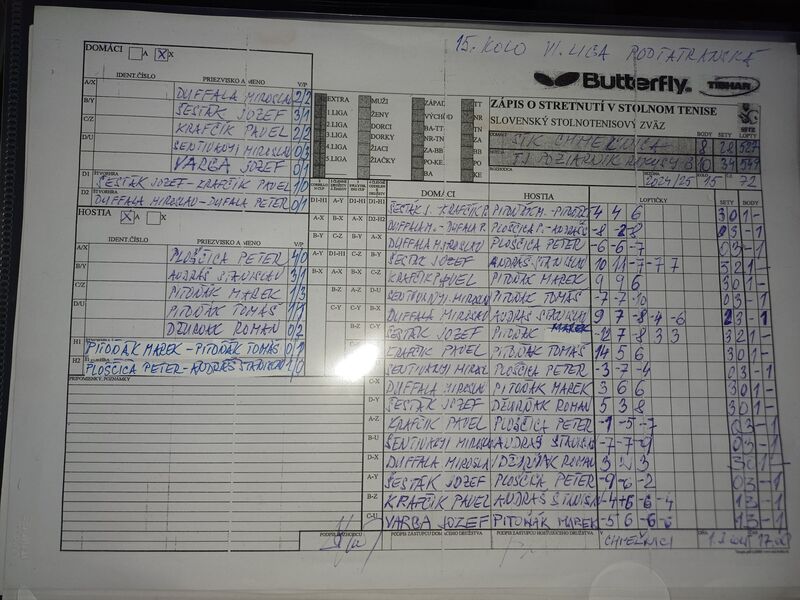 15. KOLO VI. LIGA PODTATRANSKÁ
DOMÁCI A X X
Butterfly. TIBHAR
IDENT.ČÍSLO PRIEZVISKO A MENO V/P
A/X DUFFALA MIROSLAV 2/2
B/Y ŠESTÁK JOZEF 3/1
C/Z KRAFČÍK PAVEL 2/2
D/U ŠENTIVÁNYI MIROSLAV 0/3
VARGA JOZEF 0/1
D1 ŠTVORHRA
ŠESTÁK JOZEF - KRAFČÍK PAVEL 1/0
D2 DUFFALA MIROSLAV - DUFALA PETER 0/1
EXTRA MUŽI ZÁPAD TT
1.LIGA ŽENY VÝCHOD
2.LIGA DORCI BA-TT
3.LIGA DORKY NR-TN
4.LIGA ŽIACI ZA-BB
5.LIGA ŽIAČKY PO-KE
ZÁPIS O STRETNUTÍ V STOLNOM TENISE
SLOVENSKÝ STOLNOTENISOVÝ ZVÄZ
BODY SETY LOPTY
STK CHMEĽNICA 8 28 527
TJ POŽIARNIK RAKÚSY B 10 34 549
2024/25 15 72
HOSTIA X
IDENT.ČÍSLO PRIEZVISKO A MENO V/P
A/X PLOŠČICA PETER 4/0
B/Y ANDRÁŠ STANISLAV 3/1
C/Z PITOŇÁK MAREK 1/3
D/U PITOŇÁK TOMÁŠ 1/1
DŽURŇÁK ROMAN 0/2
H1 PITOŇÁK MAREK - PITOŇÁK TOMÁŠ 0/1
H2 PLOŠČICA PETER - ANDRÁŠ STANISLAV 1/0
PRIPOMIENKY, POZNÁMKY
DOMÁCI HOSTIA LOPTIČKY SETY BODY
ŠESTÁK J. - KRAFČÍK P. PITOŇÁK M. - PITOŇÁK 4 4 6 3 0 1 -
DUFFALA M. - DUFALA P. PLOŠČICA P. - ANDRÁŠ -8 -2 -8 0 3 - 1
DUFFALA MIROSLAV PLOŠČICA PETER -6 -6 -7 0 3 - 1
ŠESTÁK JOZEF ANDRÁŠ STANISLAV 10 11 -7 -7 7 3 2 1 -
KRAFČÍK PAVEL PITOŇÁK MAREK 9 9 6 3 0 1 -
ŠENTIVÁNYI MIROSLAV PITOŇÁK TOMÁŠ -7 -7 -10 0 3 - 1
DUFFALA MIROSLAV ANDRÁŠ STANISLAV 9 7 -8 -4 -6 2 3 - 1
ŠESTÁK JOZEF PITOŇÁK MAREK 7 8 3 3 3 2 1 -
KRAFČÍK PAVEL PITOŇÁK TOMÁŠ 14 5 6 3 0 1 -
ŠENTIVÁNYI MIROSLAV PLOŠČICA PETER -3 -7 -4 0 3 - 1
C-X DUFFALA MIROSLAV PITOŇÁK MAREK 3 6 6 3 0 1 -
D-Y ŠESTÁK JOZEF DŽURŇÁK ROMAN 5 3 8 3 0 1 -
A-Z KRAFČÍK PAVEL PLOŠČICA PETER -1 -5 -7 0 3 - 1
B-U ŠENTIVÁNYI MIROSLAV ANDRÁŠ STANISLAV -7 -7 -9 0 3 - 1
D-X DUFFALA MIROSLAV DŽURŇÁK ROMAN 3 3 3 0 1 -
A-Y ŠESTÁK JOZEF PLOŠČICA PETER -9 -6 -2 0 3 - 1
B-Z KRAFČÍK PAVEL ANDRÁŠ STANISLAV -4 +6 -6 -4 1 3 - 1
C-U VARGA JOZEF PITOŇÁK MAREK -5 6 -6 -6 1 3 - 1
PODPIS ROZHODCU PODPIS ZÁSTUPCU DOMÁCEHO DRUŽSTVA PODPIS ZÁSTUPCU HOSŤUJÚCEHO DRUŽSTVA V CHMEĽNICI